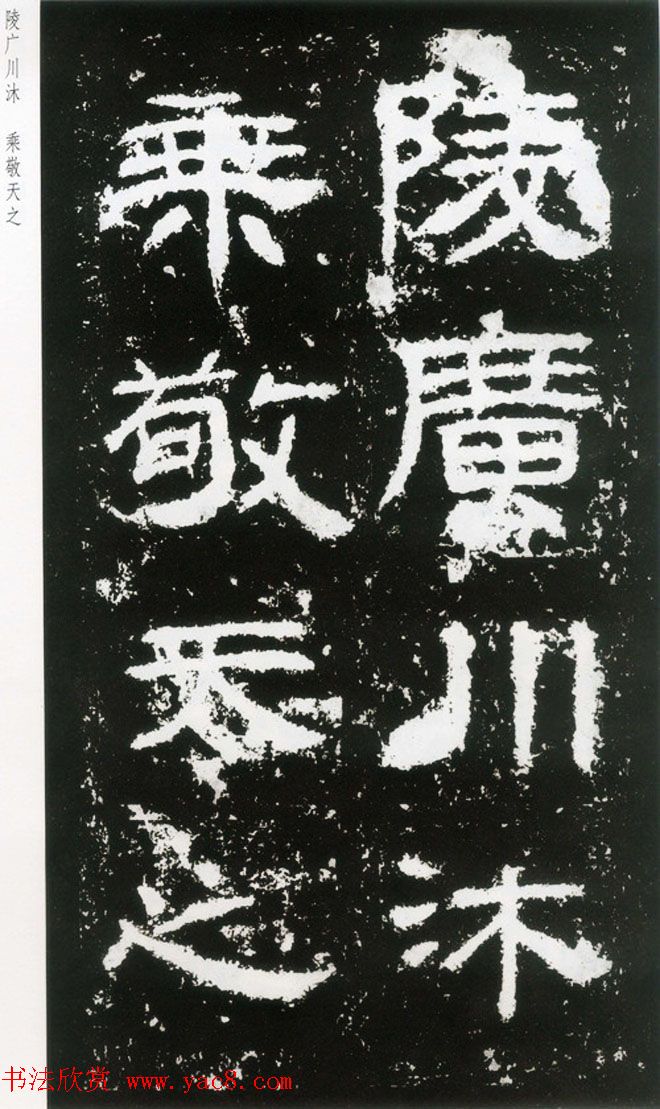 陵广川沐 乘敬天之
陵廣川沐
乘敬天之
书法欣赏 www.yac8.com